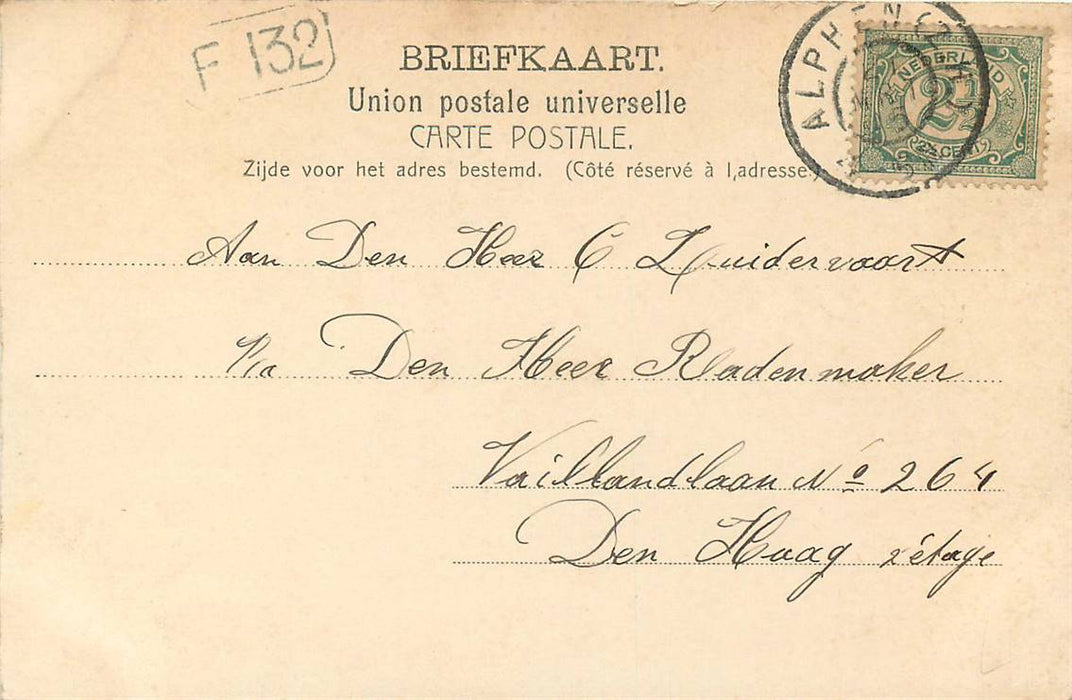 F 132
BRIEFKAART.
Union postale universelle
CARTE POSTALE.
Zijde voor het adres bestemd. (Côté réservé à l,adresse.)
ALPHEN
NEDERLAND
2 1/2
2½ CENT
Aan Den Heer C Zuidervaart
P/a Den Heer Radenmaker
Vaillandlaan No 264
Den Haag 2 étage